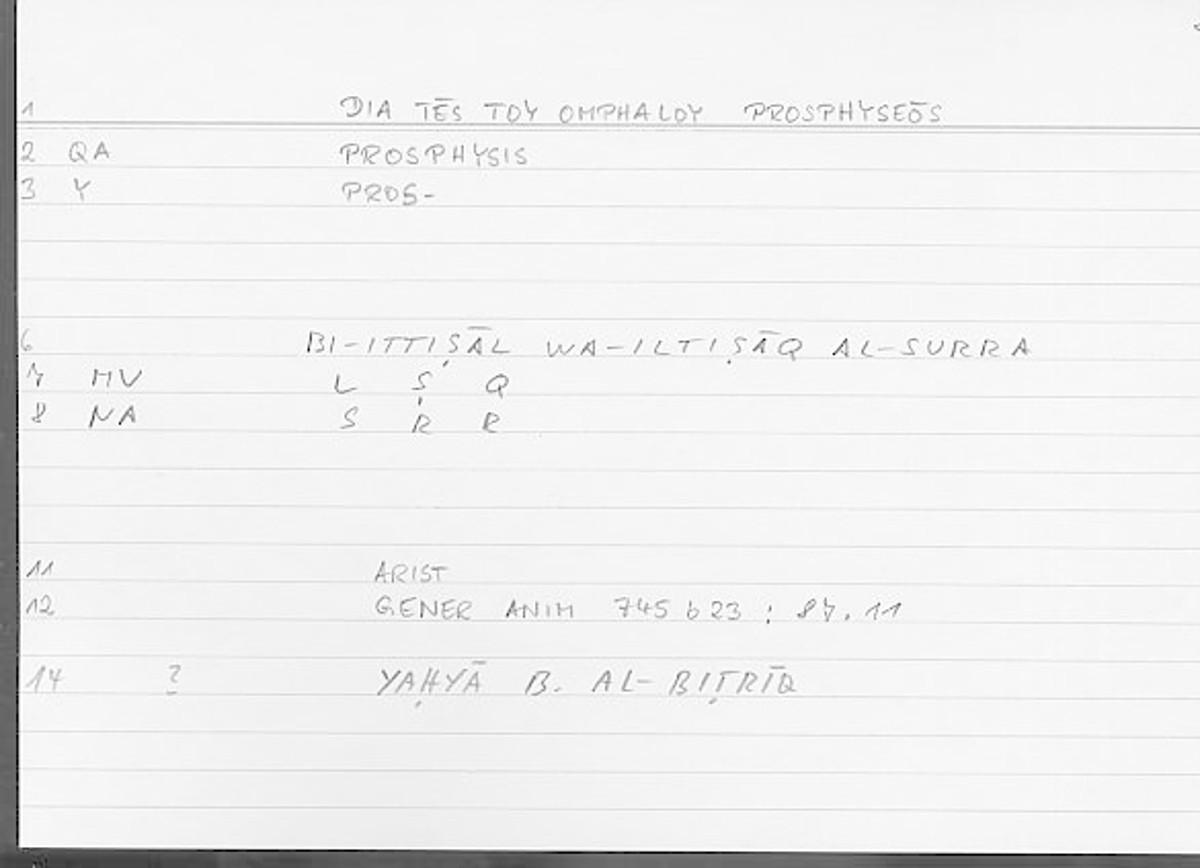 1 DIA TĒS TOY OMPHALOY PROSPHYSEŌS
2 QA PROSPHYSIS
3 Y PROS-
6 BI-ITTIṢĀL WA-ILTIṢĀQ AL-SURRA
7 MV L Ṣ Q
8 NA S R R
11 ARIST
12 GENER ANIM 745 b 23 : 87.11
14 ? YAḤYĀ B. AL-BIṬRĪQ